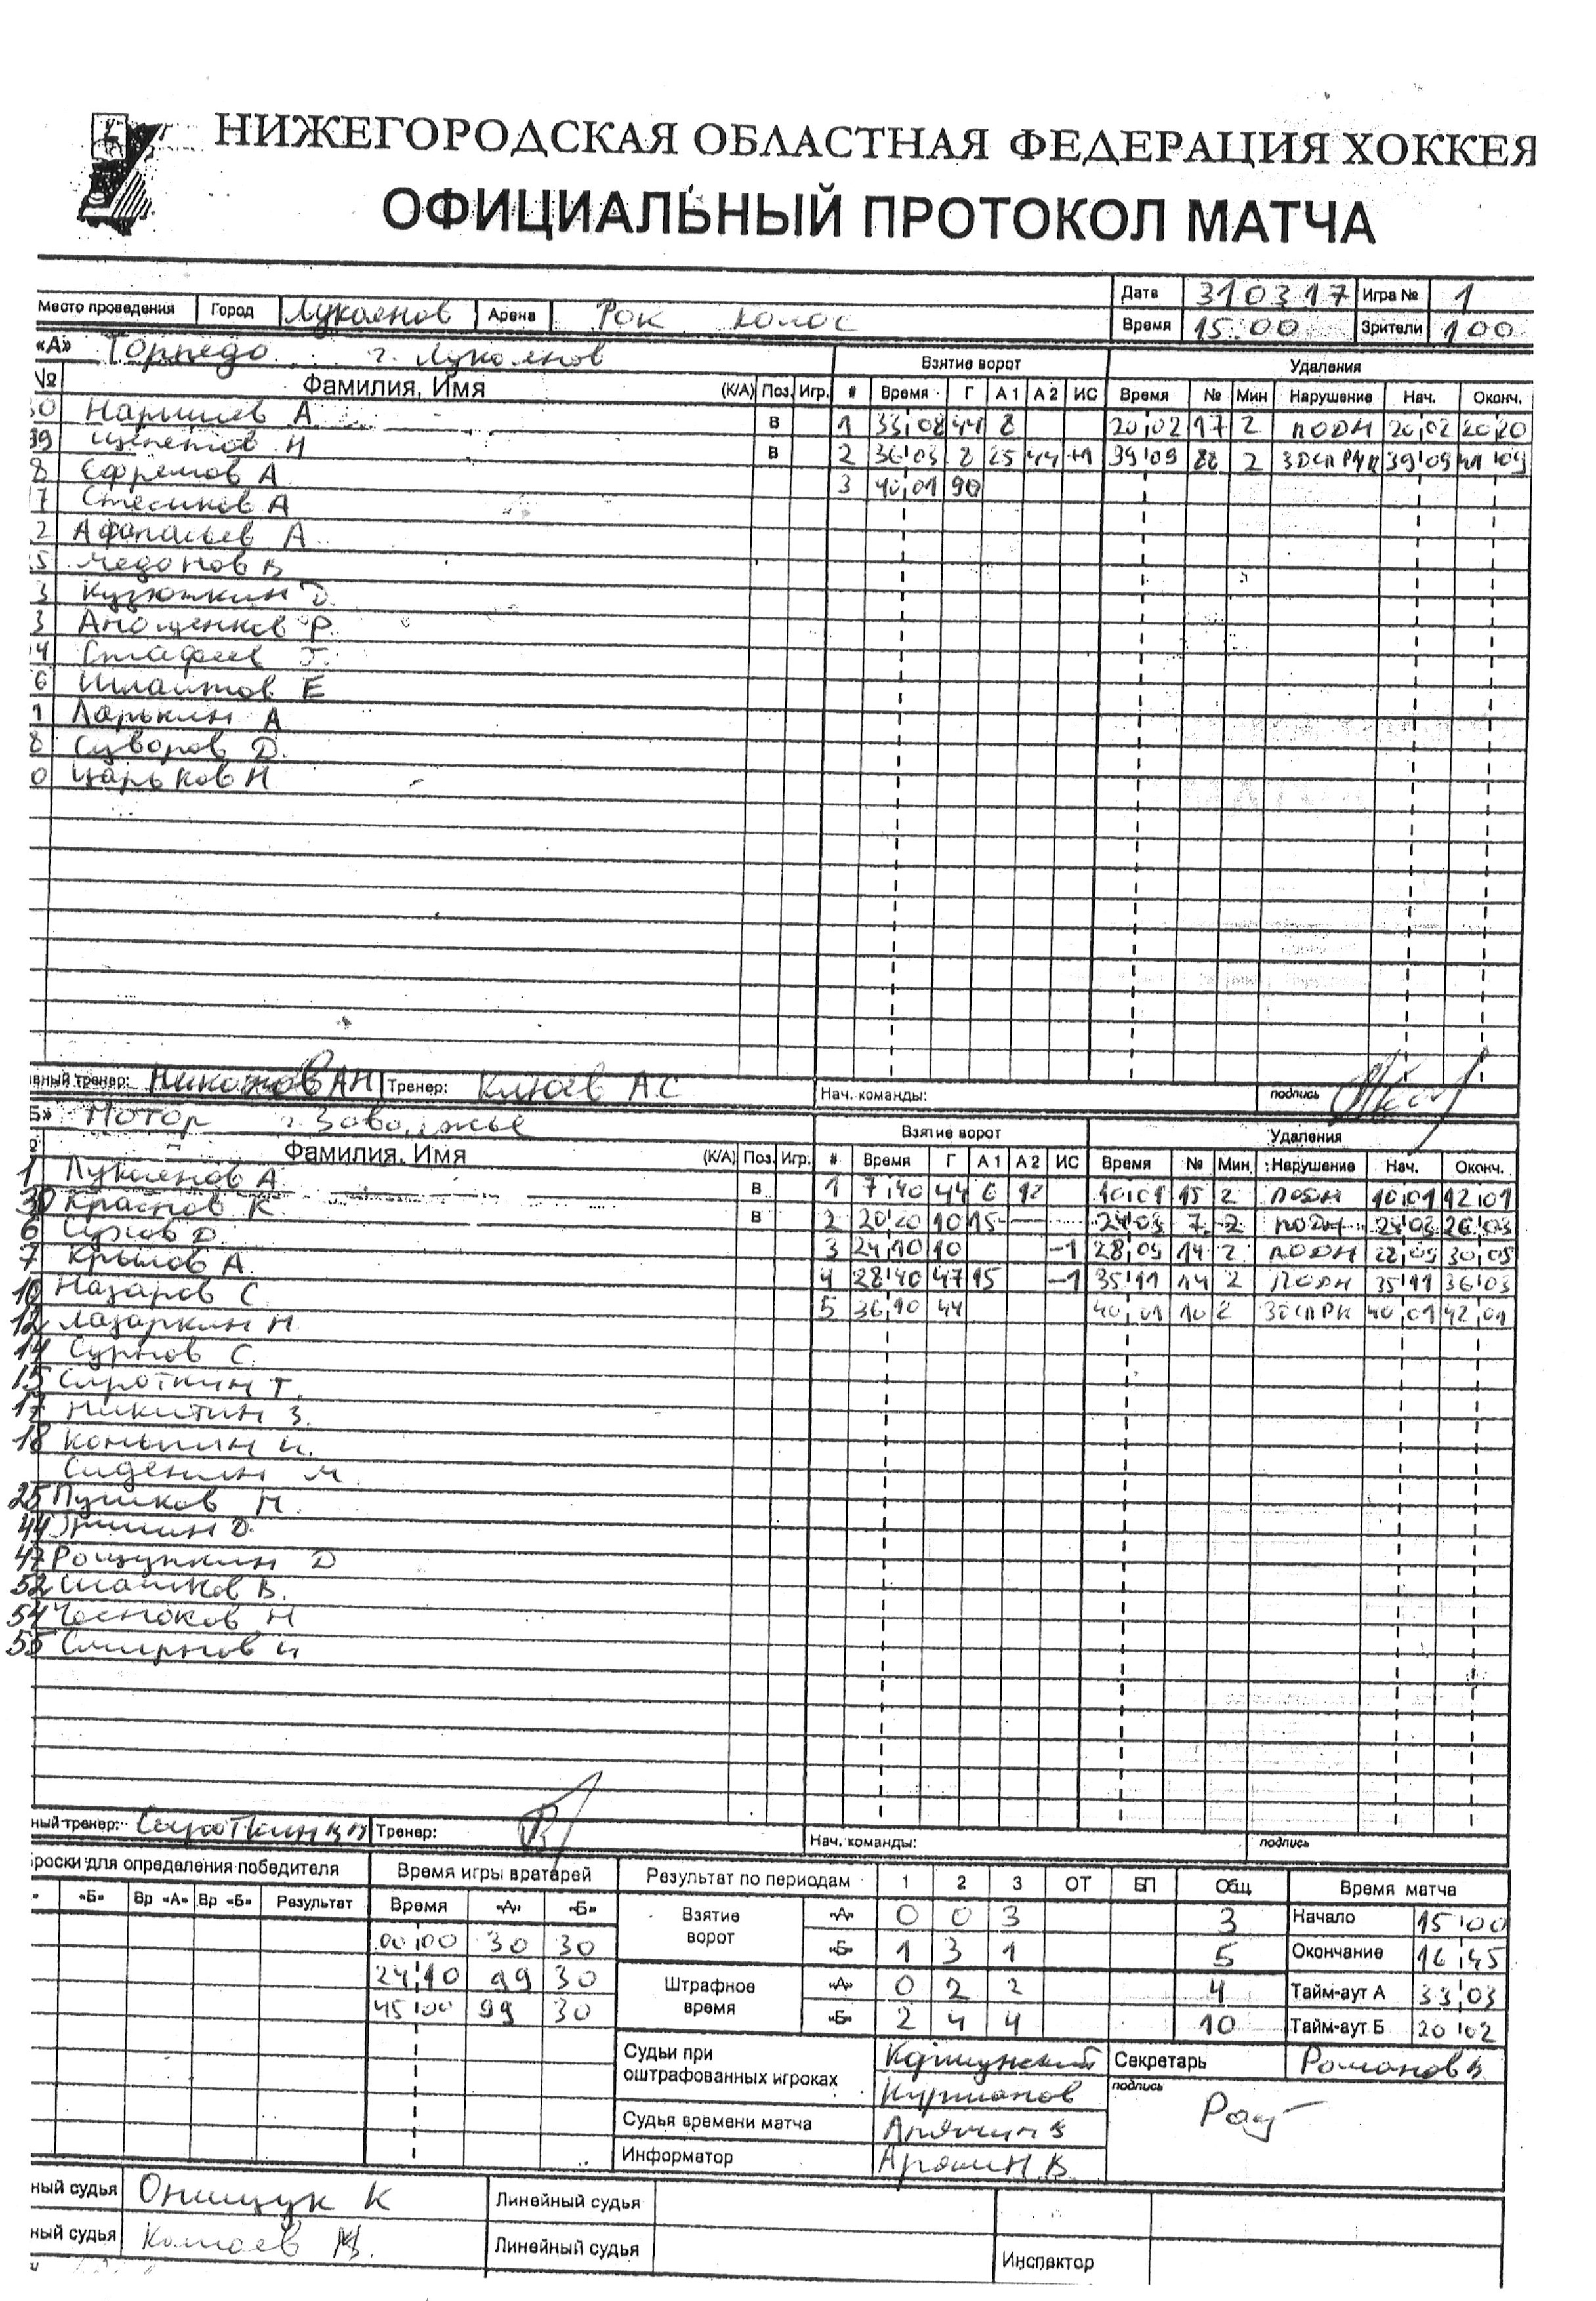 НИЖЕГОРОДСКАЯ ОБЛАСТНАЯ ФЕДЕРАЦИЯ ХОККЕЯ
ОФИЦИАЛЬНЫЙ ПРОТОКОЛ МАТЧА
Место проведения Город Лукоянов Арена Рок Колос Дата 310317 Игра № 1
Время 15 00 Зрители 100
«А» Торпедо г. Лукоянов Взятие ворот Удаления
№ Фамилия, Имя (К/А) Поз. Игр. # Время Г А1 А2 ИС Время № Мин Нарушение Нач. Оконч.
Нарышев А В 1 33 08 44 8 20 02 17 2 ПОДН 20 02 20 20
99 Щепетов Н В 2 36 03 8 25 44 +1 39 09 88 2 39 09 41 09
8 Ефремов А 3 40 01 90
7 Стесиков А
2 Афанасьев А
5 Чедонов В
3 Кузюткин Д
3 Анощенков Р.
4 Стафеев Г.
6 Шлаптов Е
1 Ларькин А
8 Суворов Д.
0 Царьков Н
тренер: Тренер: Клюев А.С Нач. команды: подпись
Б» Мотор г. Заволжье Взятие ворот Удаления
Фамилия, Имя (К/А) Поз. Игр. # Время Г А1 А2 ИС Время № Мин Нарушение Нач. Оконч.
1 Лукоянов А В 1 7 40 44 6 12 10 01 15 2 ПОДН 10 01 12 01
30 Краснов К В 2 20 20 10 15 24 03 7 2 ПОДН 24 03 26 03
6 Сухов Д 3 24 10 10 -1 28 05 14 2 ПОДН 28 05 30 05
7 Крылов А 4 28 40 47 15 -1 35 11 44 2 ПОДН 35 11 36 03
10 Назаров С 5 36 10 44 40 01 10 2 40 01 42 01
12 Лазаркин Н
14 Сурнов С
15 Сироткин Т.
17 Никитин З.
18 Коньшин И.
Сиденин М
25 Пушков Н.
44 Гришин Д
47 Рощупкин Д
52 Шашков В.
54 Чесноков Н
55 Смирнов И
тренер: Сироткин Тренер: Нач. команды: подпись
броски для определения победителя Время игры вратарей Результат по периодам 1 2 3 ОТ БП Общ Время матча
«Б» Вр «А» Вр «Б» Результат Время «А» «Б» Взятие ворот «А» 0 0 3 3 Начало 15 00
00 00 30 30 «Б» 1 3 1 5 Окончание 16 45
24 10 99 30 Штрафное время «А» 0 2 2 4 Тайм-аут А 33 03
45 00 99 30 «Б» 2 4 4 10 Тайм-аут Б 20 02
Судьи при оштрафованных игроках Секретарь Романов В
Курманов подпись
Судья времени матча Арямин В
Информатор Арямин В.
судья Онищук К Линейный судья
судья Линейный судья Инспектор